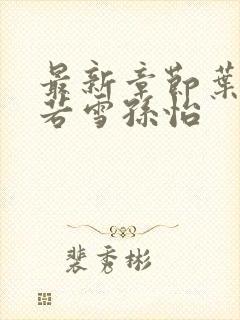 最新章节葉
若雪孫怡
裴秀彬